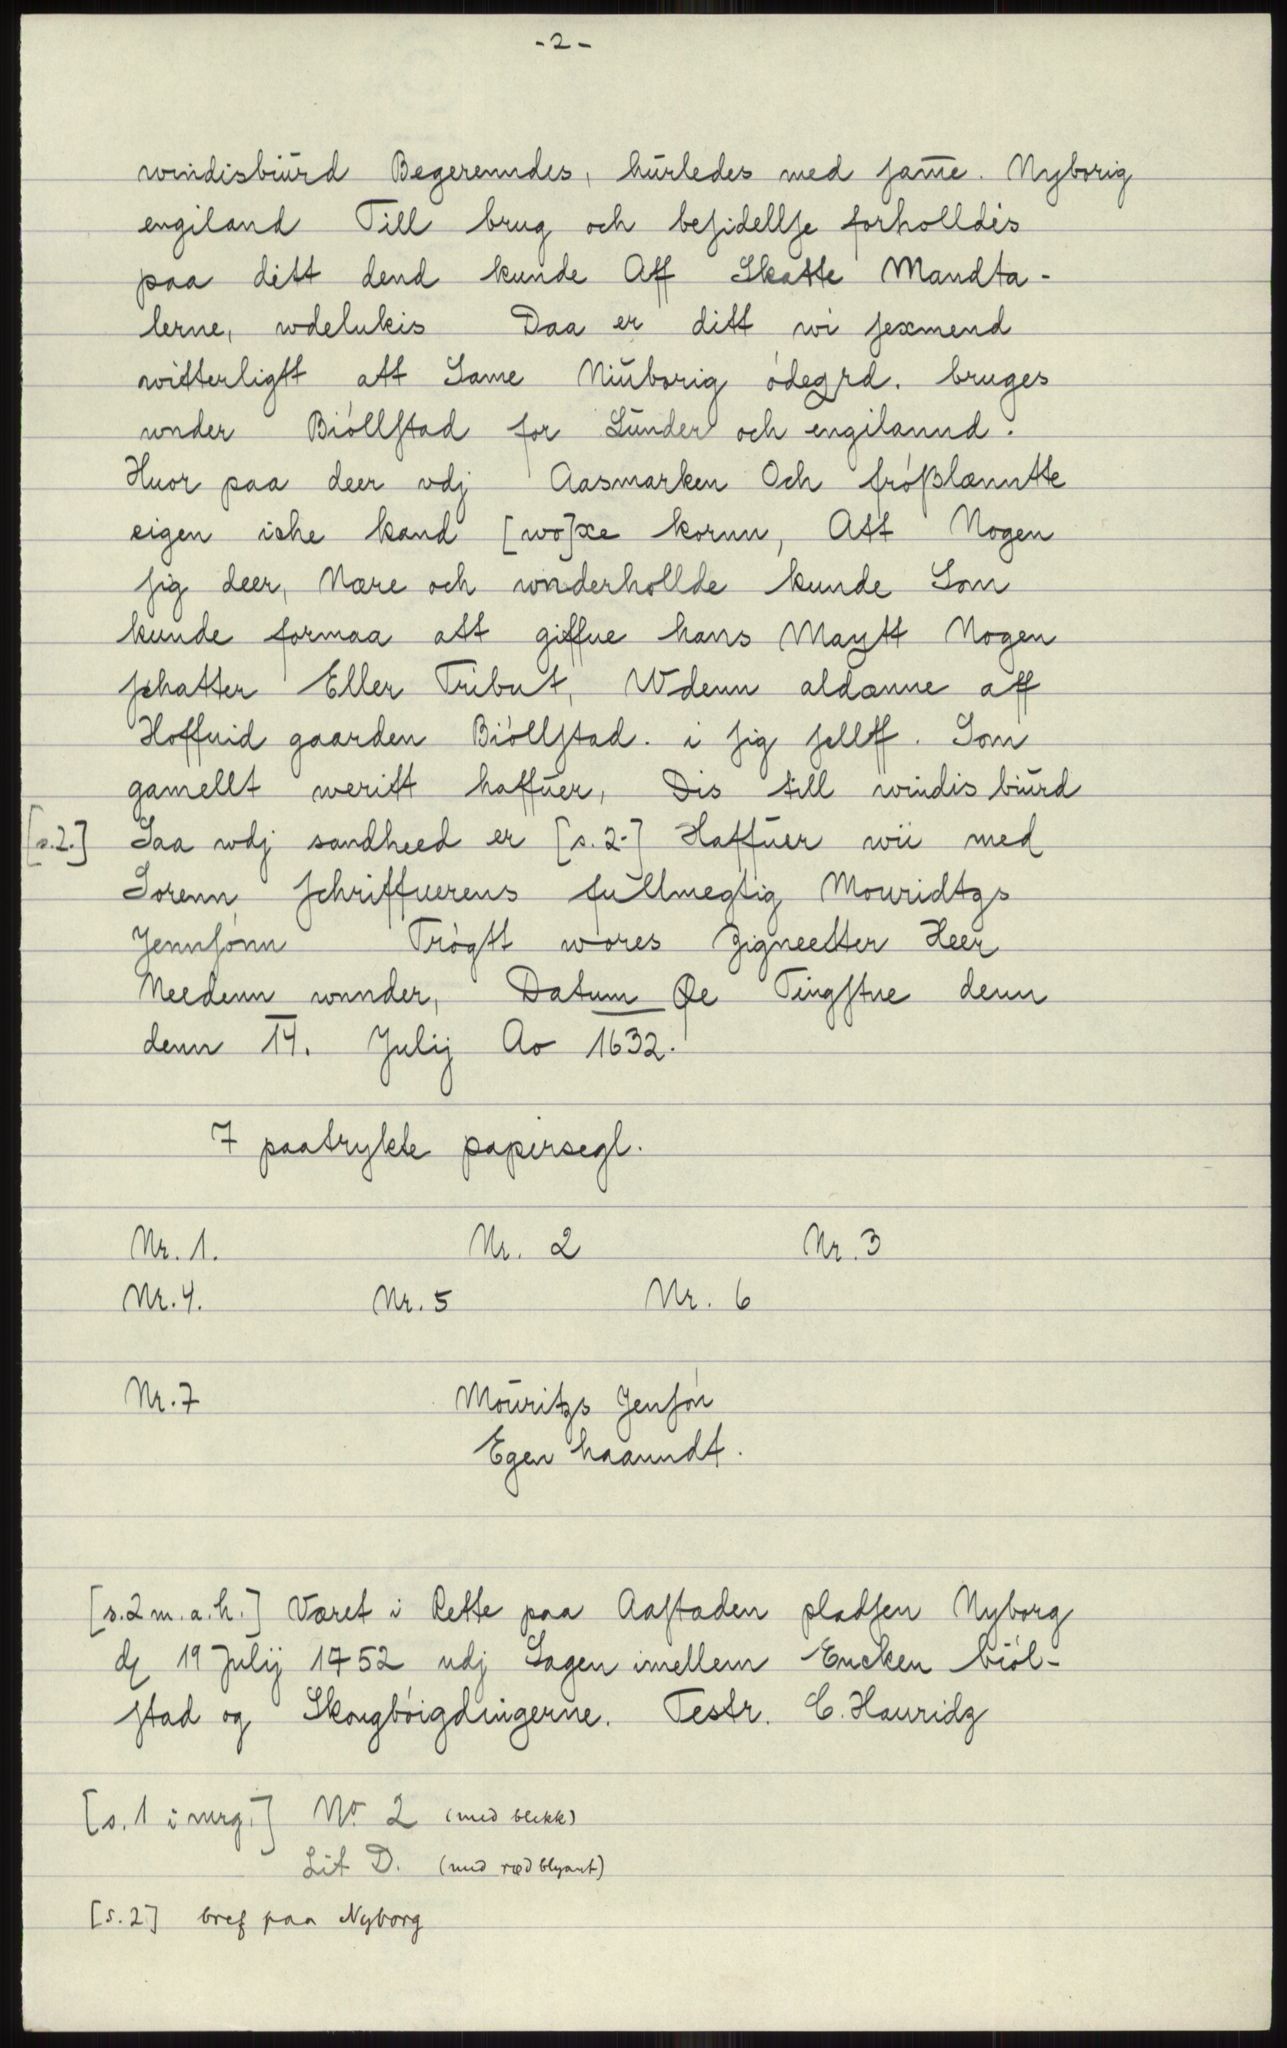 - 2 -
windisbiurd Begerenndes, hurledes med same. Nyborig
engiland Till brug och besidellse forholldés
paa dett dend kunde Aff Skatte Mandta-
lerne, wdelukis Daa er ditt wi sexmend
witterligtt att Same Niuborig ödegrd. bruges
wnder Biöllstad for Sunder och engilannd.
Huor paa deer vdj Aasmarken Och frößlænntte
eigen iche kand [wo]xe kornn, Att Nogen
sig deer, Nære och wnderhollde kunde Som
kunde formaa att giffue hans Maytt Nogen
schatter Eller Tribut, Wdenn aldænne aff
Hoffuid gaarden Biöllstad. i sig sellff. Som
gamellt weritt haffuer, Dis till windis biurd
[s.2.] Saa wdj sandheed er [s. 2.] Haffuer wii med
Sorenn schriffuerens fullmegtig Mouridtzs
Jennsönn Trögtt wores Zigneetter Heer
Needenn wnnder, Datum Øe Tingstue denn
denn 14. Julij Ao 1632.
7 paatrykte papirsegl.
Nr. 1. Nr. 2 Nr. 3
Nr. 4. Nr. 5 Nr. 6
Nr. 7 Mouritzs Jensön
Egen haanndt.
[s. 2 m. a. h.] Været i Rette paa Aastaden pladsen Nyborg
d 19 Julij 1752 udj Sagen imellem Encken biöl-
stad og Skougböigdingerne. Testr. C. Hauridz
[s. 1 i mrg.] No 2 (med blekk)
Lit D. (med rød blyant)
[s. 2] bref paa Nyborg